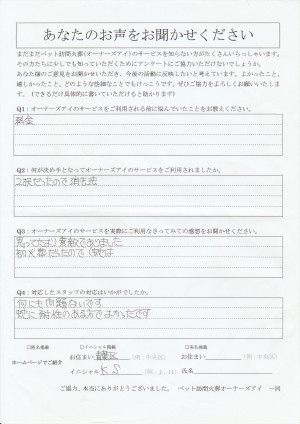 あなたのお声をお聞かせください
まだまだペット訪問火葬(オーナーズアイ)のサービスを知らない方がたくさんいらっしゃいます。
その方たちに少しでも知っていただくためにアンケートにご協力いただけないでしょうか。
あなた様のご意見をお聞かせいただき、今後の活動に反映したいと考えています。よかったこと、
嬉しかったこと、どのような些細なことでもけっこうです。ぜひご協力をよろしくお願いいたしま
す。(できるだけ具体的に書いていただけると助かります)
Q1:オーナーズアイのサービスをご利用される前に悩んでいたことをお教えください。
料金
Q2:何が決め手となってオーナーズアイのサービスをご利用されましたか。
2択だったので消去法
Q3:オーナーズアイのサービスを実際にご利用なさってみての感想をお聞かせください。
思ってたより素敵でありました
初火葬だったので(蛇は
Q4:対応したスタッフの対応はいかがでしたか。
何にも問題ないです
蛇に耐性のある方でよかったです
□匿名掲載 □イニシャル掲載 □実名掲載
ホームページでご紹介
お住まい 区(例:中央区) お住まい (例:中央区)
イニシャル K S (例:t.h) 氏名
ご協力、本当にありがとうございました。 ペット訪問火葬オーナーズアイ 一同